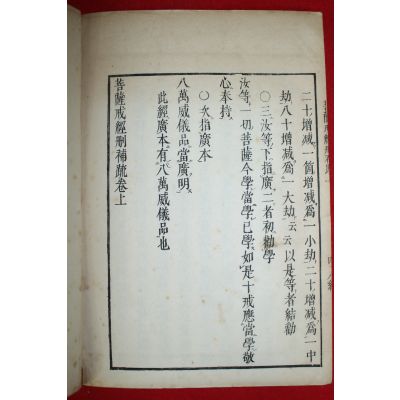 二十增减一箇增减爲一小劫二十增减爲一中
劫八十增减爲一大劫云云以是等者結勸
○三汝等下指廣二者初勸學
汝等一切菩薩今學當學已學如是十戒應當學敬
心奉持
○次指廣本
八萬威儀品當廣明
此經廣本有八萬威儀品也
菩薩戒經刪補疏卷上